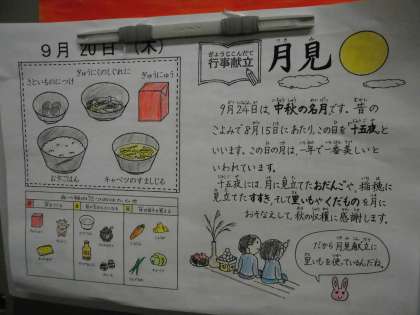 9月20日(木)
ぎょうじこんだて
行事献立
つきみ
月見
さといものにつけ
ぎゅうにくのしぐれに
ぎゅうにゅう
お茶ごはん
キャベツのすましじる
9月24日は中秋の名月です。昔の
こよみで8月15日にあたり、この日を「十五夜」と
いいます。この日の月は、一年で一番美しいと
いわれています。
十五夜には、月に見立てたおだんごや、稲穂に
見立てたすすき そして里いもやくだものを月に
おそなえして、秋の収穫に感謝します。
だから月見献立に
里いもを使っているんだね。